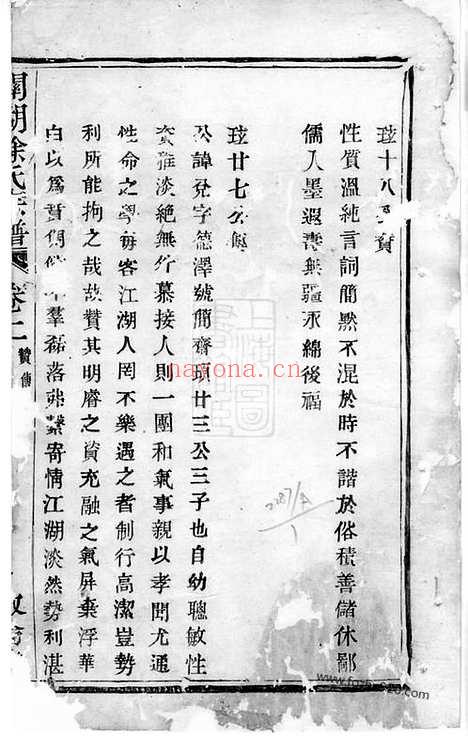 玹十八公贊
性質溫純言詞簡默不混於時不諧於俗積善儲休鄙
儒入墨遐壽無疆永綿後福
玹廿七公傳
公諱兗字德澤號簡齋頊廿三公三子也自幼聰敏性
資雅淡絶無外慕接人則一團和氣事親以孝聞尤通
性命之學每客江湖人罔不樂遇之者制行高潔豈勢
利所能拘之哉故贊其明睿之資充融之氣屏棄浮華
自以爲貴倜儻不羣磊落寄情江湖淡然勢利湛
湖徐氏宗譜 卷二 贊傳
2287/A
1
nayona.cn